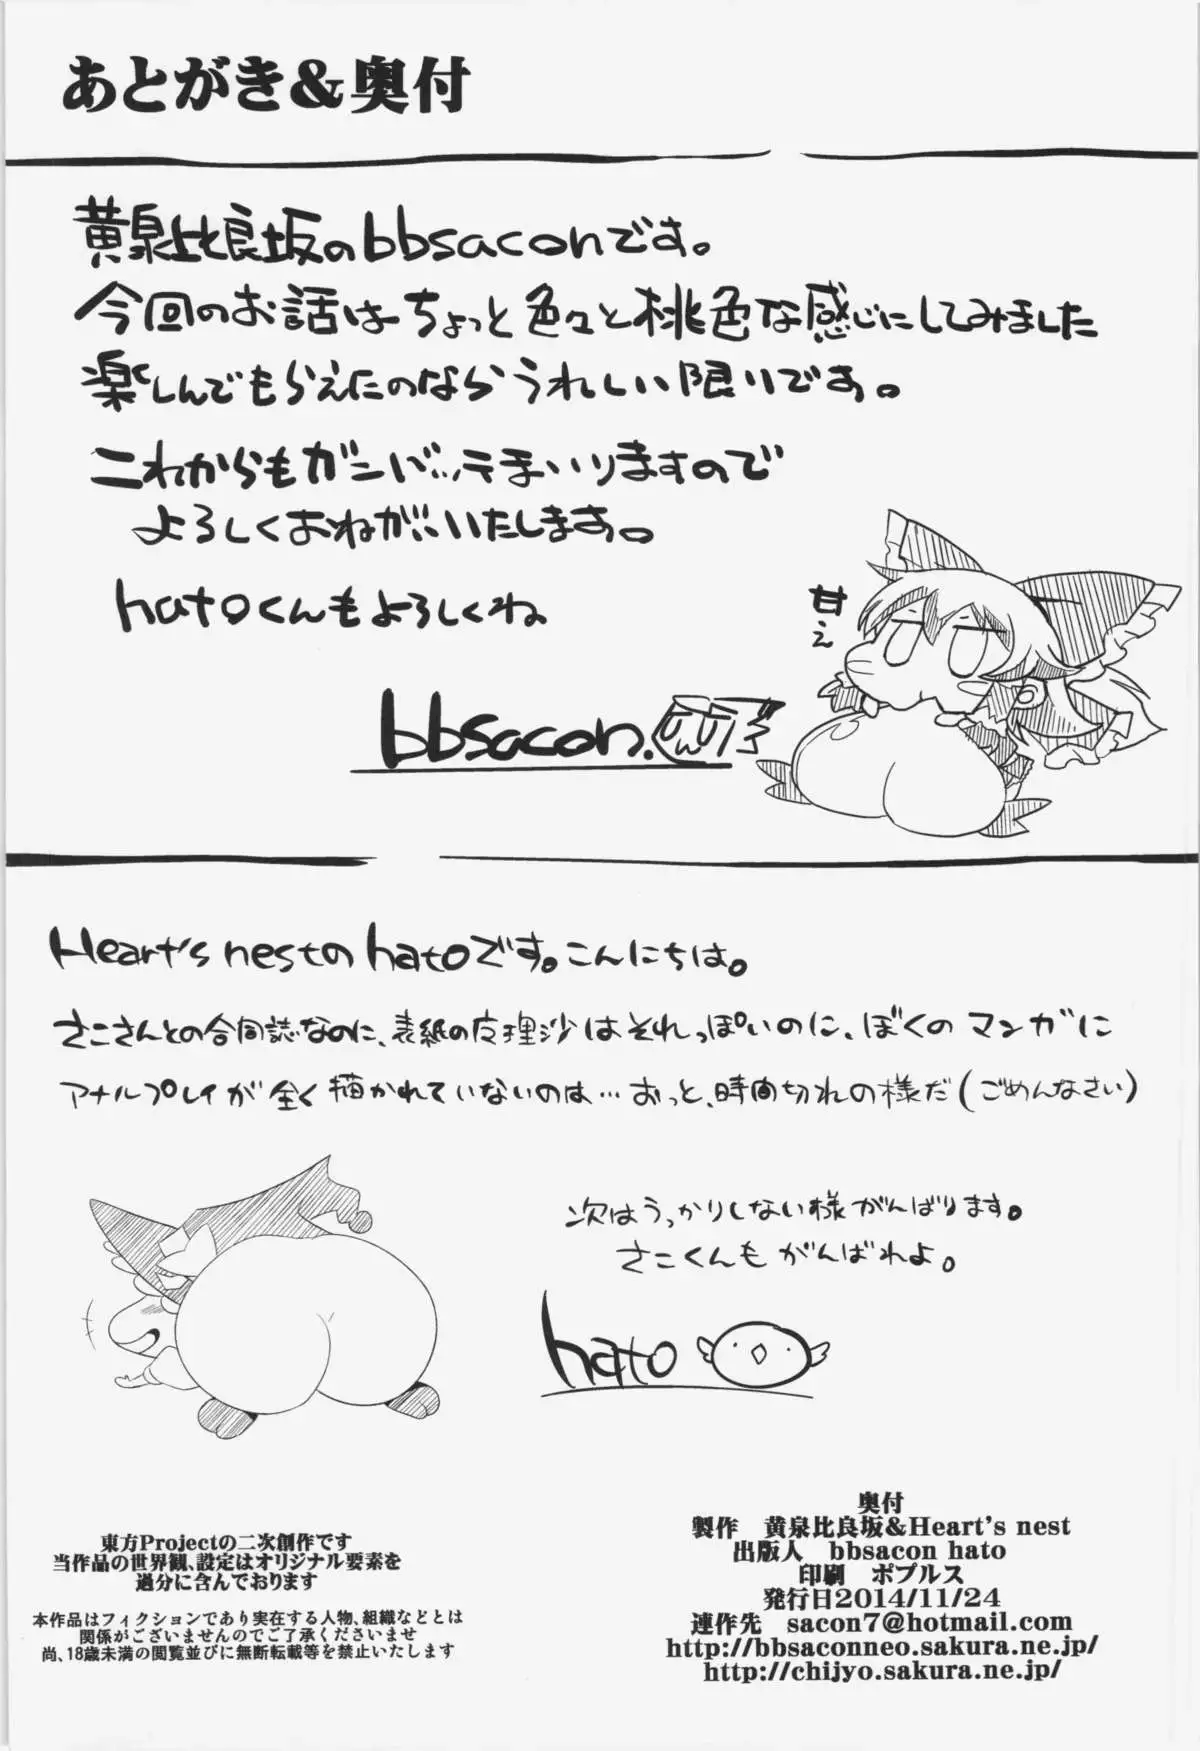 あとがき&奥付
黄泉比良坂のbbsaconです。
今回のお話はちょっと色々と桃色な感じにしてみました
楽しんでもらえたのならうれしい限りです。
これからもガンバッテまいりますので
よろしくおねがいいたします。
hatoくんもよろしくね
甘え
bbsacon.
Heart's nestの hatoです。こんにちは。
さこさんとの合同誌なのに、表紙の魔理沙はそれっぽいのに、ぼくのマンガに
アナルプレイが全く描かれていないのは…おっと、時間切れの様だ(ごめんなさい)
次はうっかりしない様がんばります。
さこくんも がんばれよ。
hato
東方Projectの二次創作です
当作品の世界観、設定はオリジナル要素を
過分に含んでおります
本作品はフィクションであり実在する人物、組織などとは
関係がございませんのでご了承くださいませ
尚、18歳未満の閲覧並びに無断転載等を禁止いたします
奥付
製作 黄泉比良坂&Heart's nest
出版人 bbsacon hato
印刷 ポプルス
発行日2014/11/24
連作先 sacon7@hotmail.com
http://bbsaconneo.sakura.ne.jp/
http://chijyo.sakura.ne.jp/